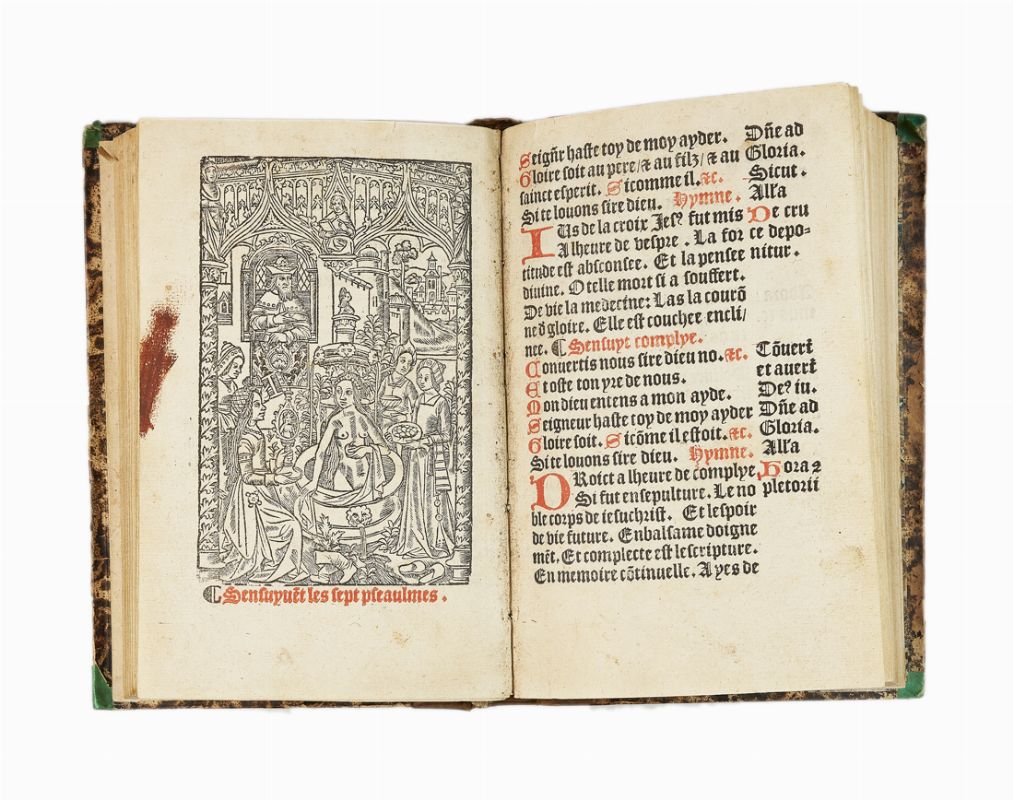 ¶ Sensuyuẽt les sept pseaulmes .
Seigñr haste toy de moy ayder. Dñe ad
Gloire soit au pere/ ⁊ au filz/ ⁊ au Gloria.
sainct esperit. Sicomme il. ⁊c. Sicut.
Si te louons sire dieu. Hymne . All'a
IUs de la croix Jesꝰ fut mis De cru
A lheure de vespre . La for ce depo-
titude est absconsee. Et la pensee nitur.
diuine. O telle mort si a souffert.
De vie la medecine: Las la courõ
ne d̃ gloire. Elle est couchee encli/
nee. ¶ Sensuyt complye.
Conuertis nous sire dieu no. ⁊c. Cõuert̃
Et oste ton yre de nous. et auert̃
Mon dieu entens a mon ayde. Deꝰ in.
Seigneur haste toy de moy ayder Dñe ad
Gloire soit. Sicõme il estoit. ⁊c. Gloria.
Si te louons sire dieu. Hymne. All'a
DRoict a lheure de complye Hora ꝯ
Si fut ensepulture. Le no pletorii
ble corps de iesuchrist. Et lespoir
de vie future. Enbalsame doigne
mẽt. Et complecte est lescripture.
En memoire cõtinuelle. Ayes de